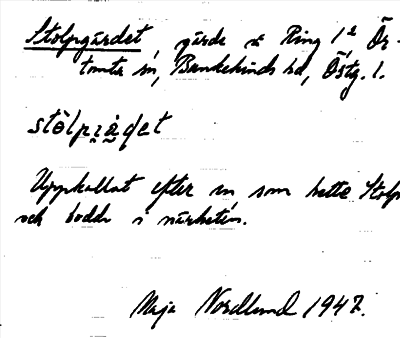 Stolpgärdet, gärde å Ring 1², Ör-
tomta sn, Bankekinds hd, Östg. l.
stòlpɼạ̊ɖet
Uppkallat efter en som hette Stolp
och bodde i närheten.
Maja Nordlund 1947.